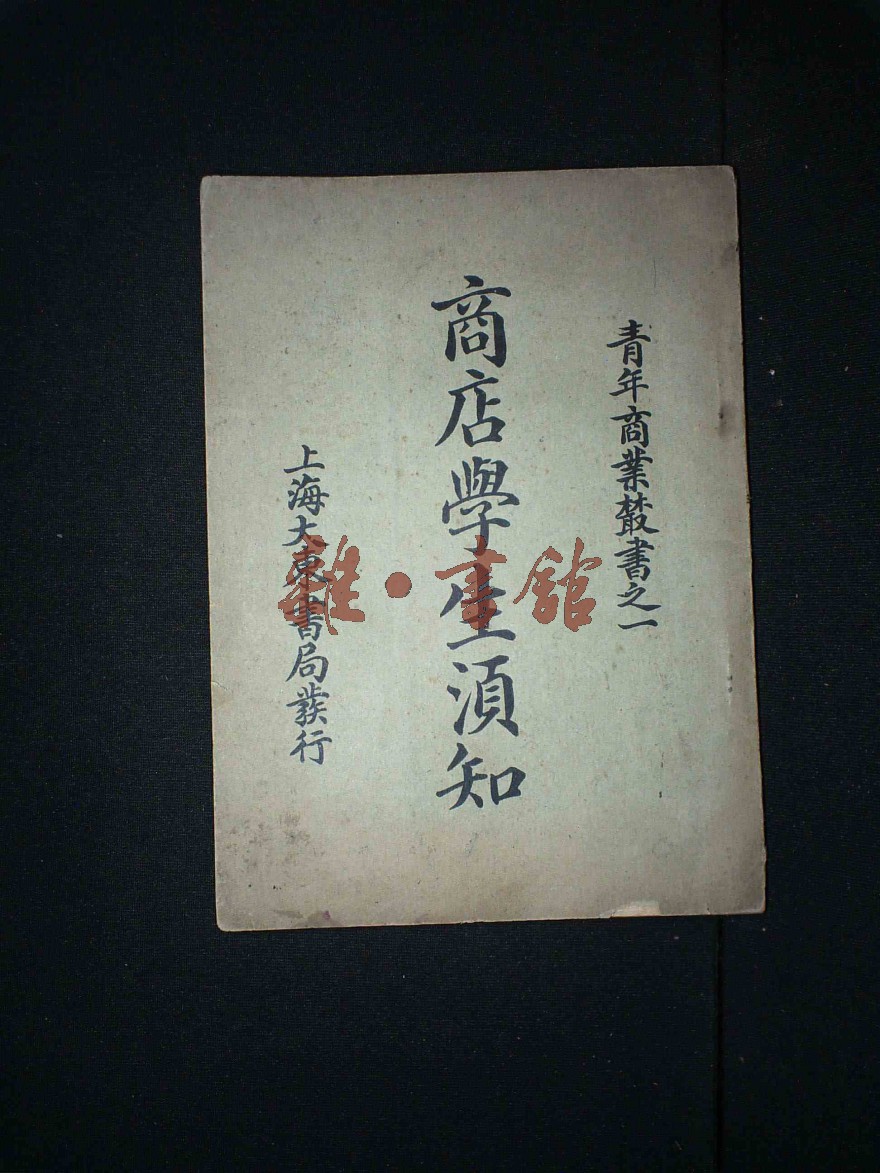 青年商業叢書之一
商店學生須知
上海大東書局發行
雜·書館